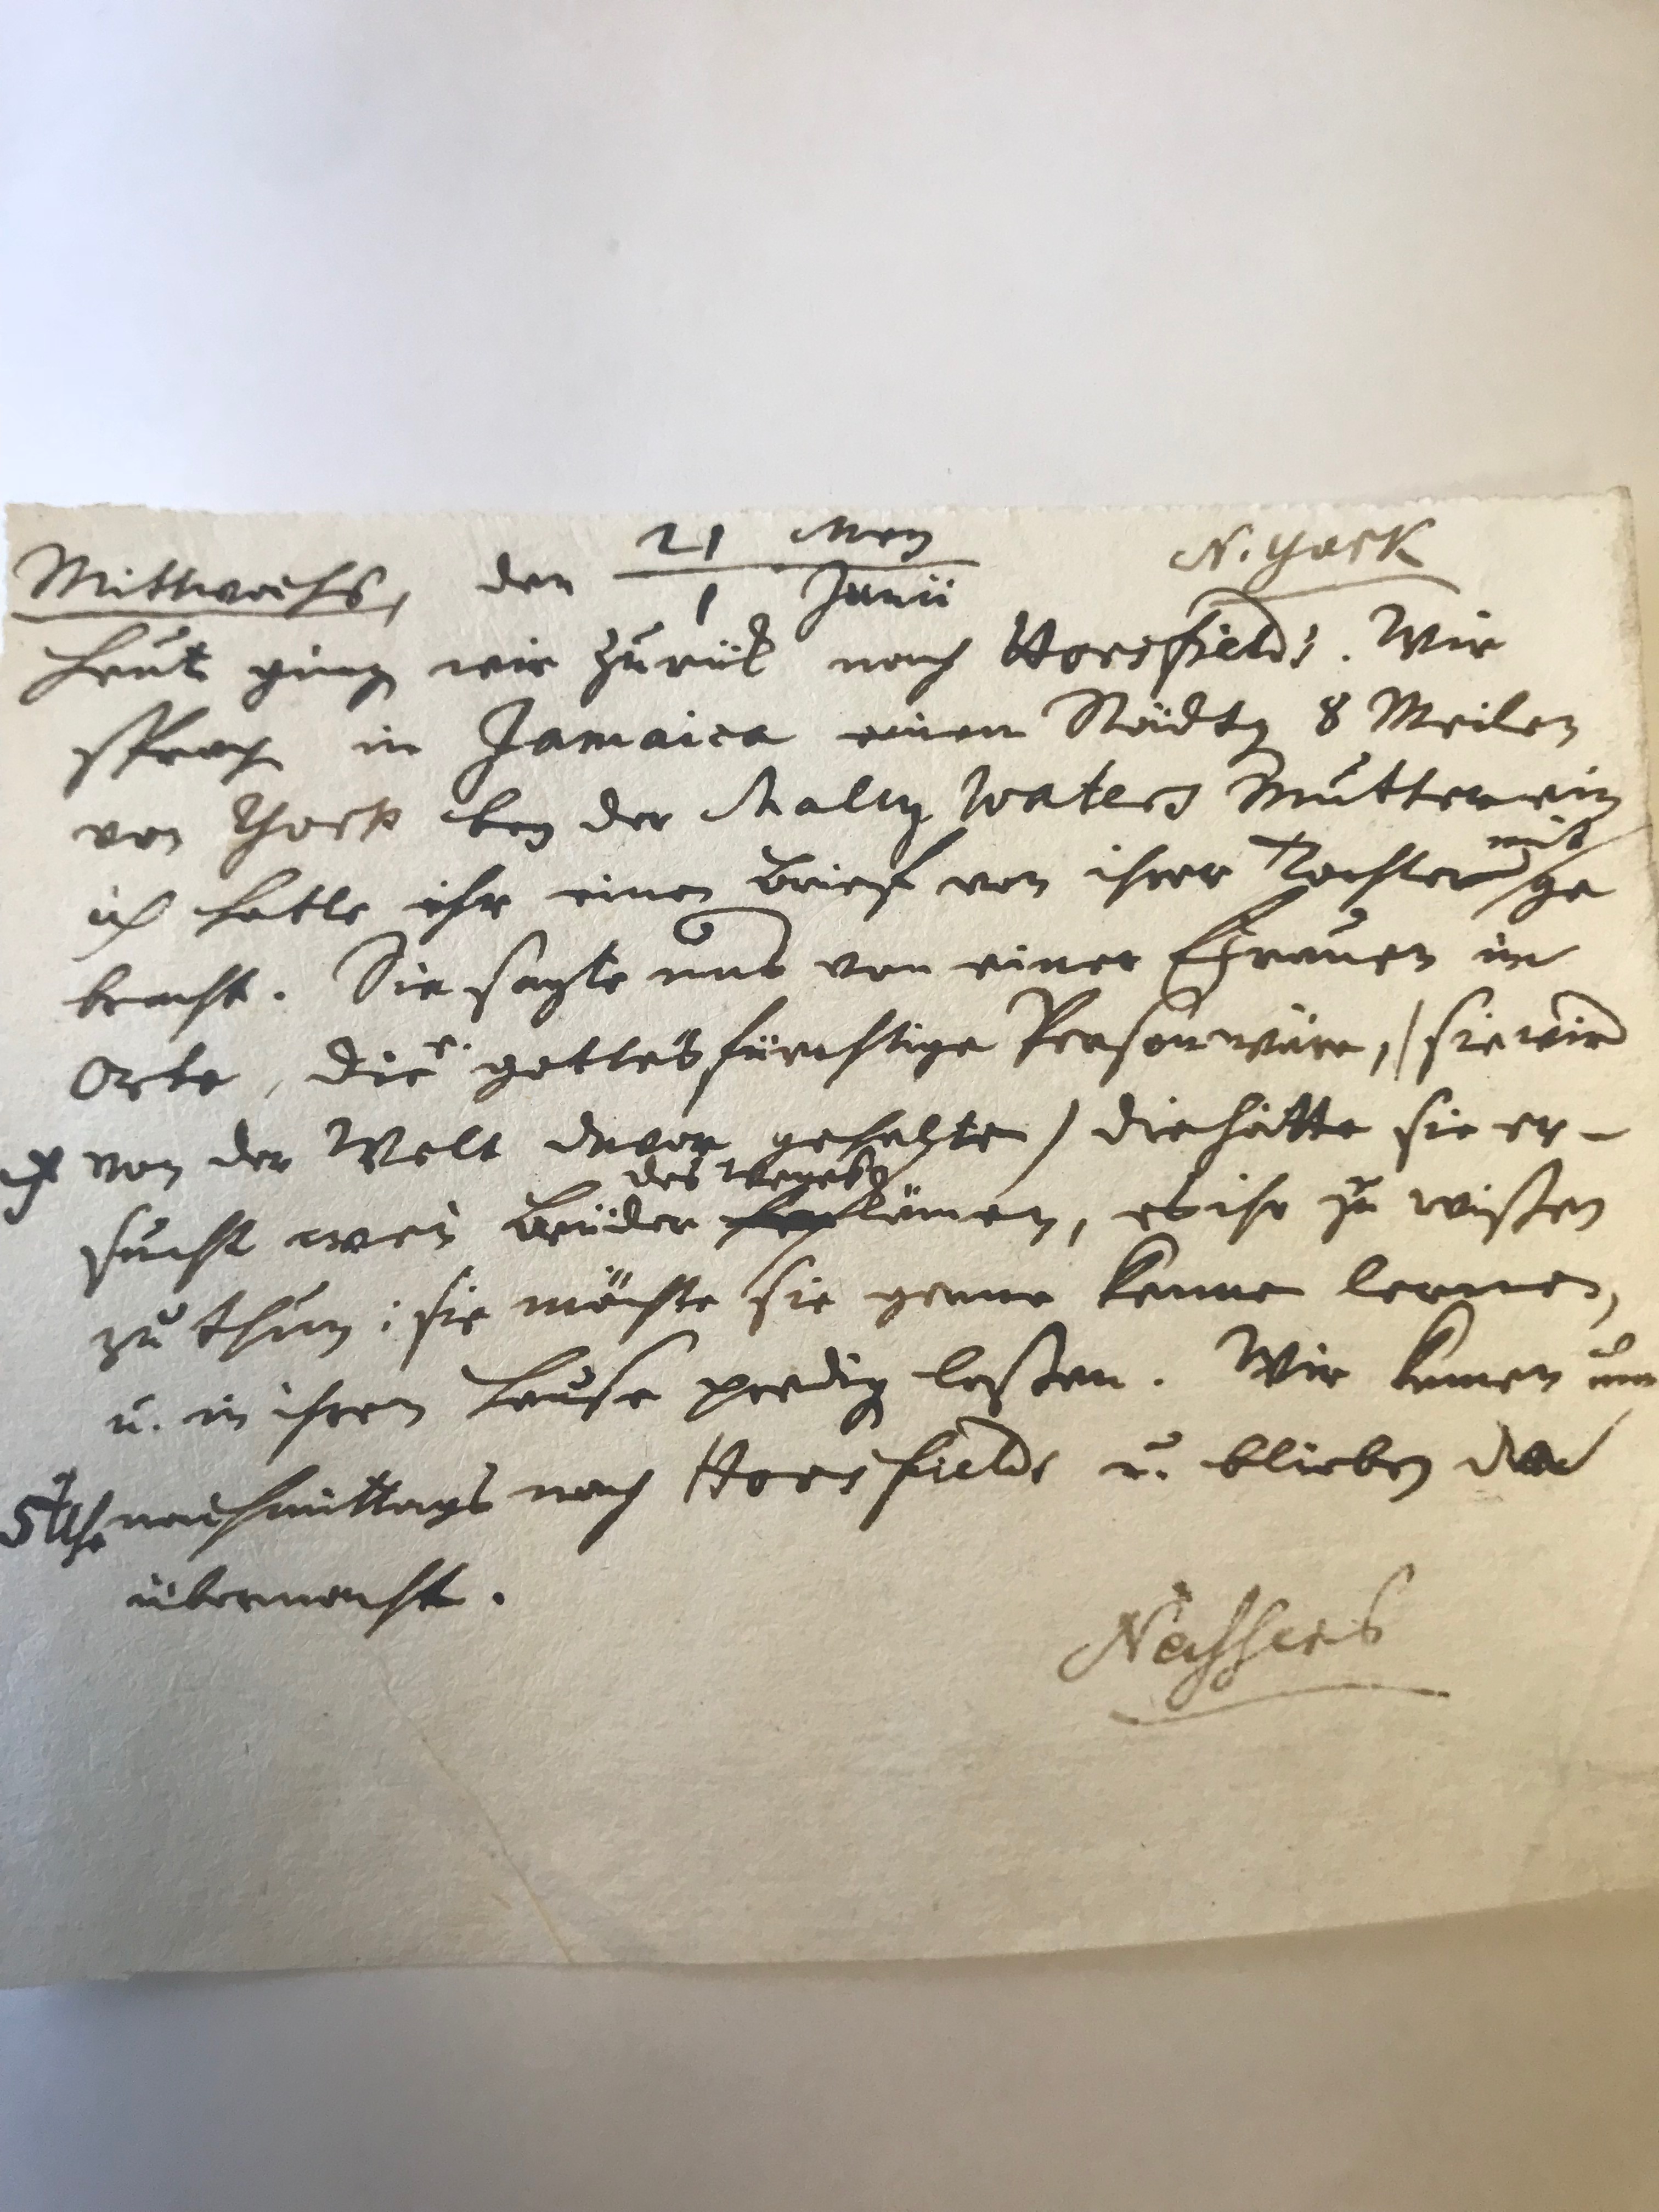 Mittwochs, den 21 May / 1 Junii N. York
Heut ging wir zurück nach Horsfields. Wir
sprach in Jamaica einem Städtg 8 Meilen
von York bey der Maly Waters Mutter ein
ich hatte ihr einen Brief von ihrer Tochter mit ge
bracht. Sie sagte uns von einer Frauen im
Orte, die e. gottesfürchtige Person wäre, / sie wird
von der Welt davor gehalten / die hätte sie er-
sucht wen Brüder des Weges kämen, es ihr zu wißen
zu thun; sie möchte sie gerne kenne lernen,
u. in ihrem Hause predig laßen. Wir kamen um
5 Uhr nachmittags nach Horsfields u. blieben da
übernacht.